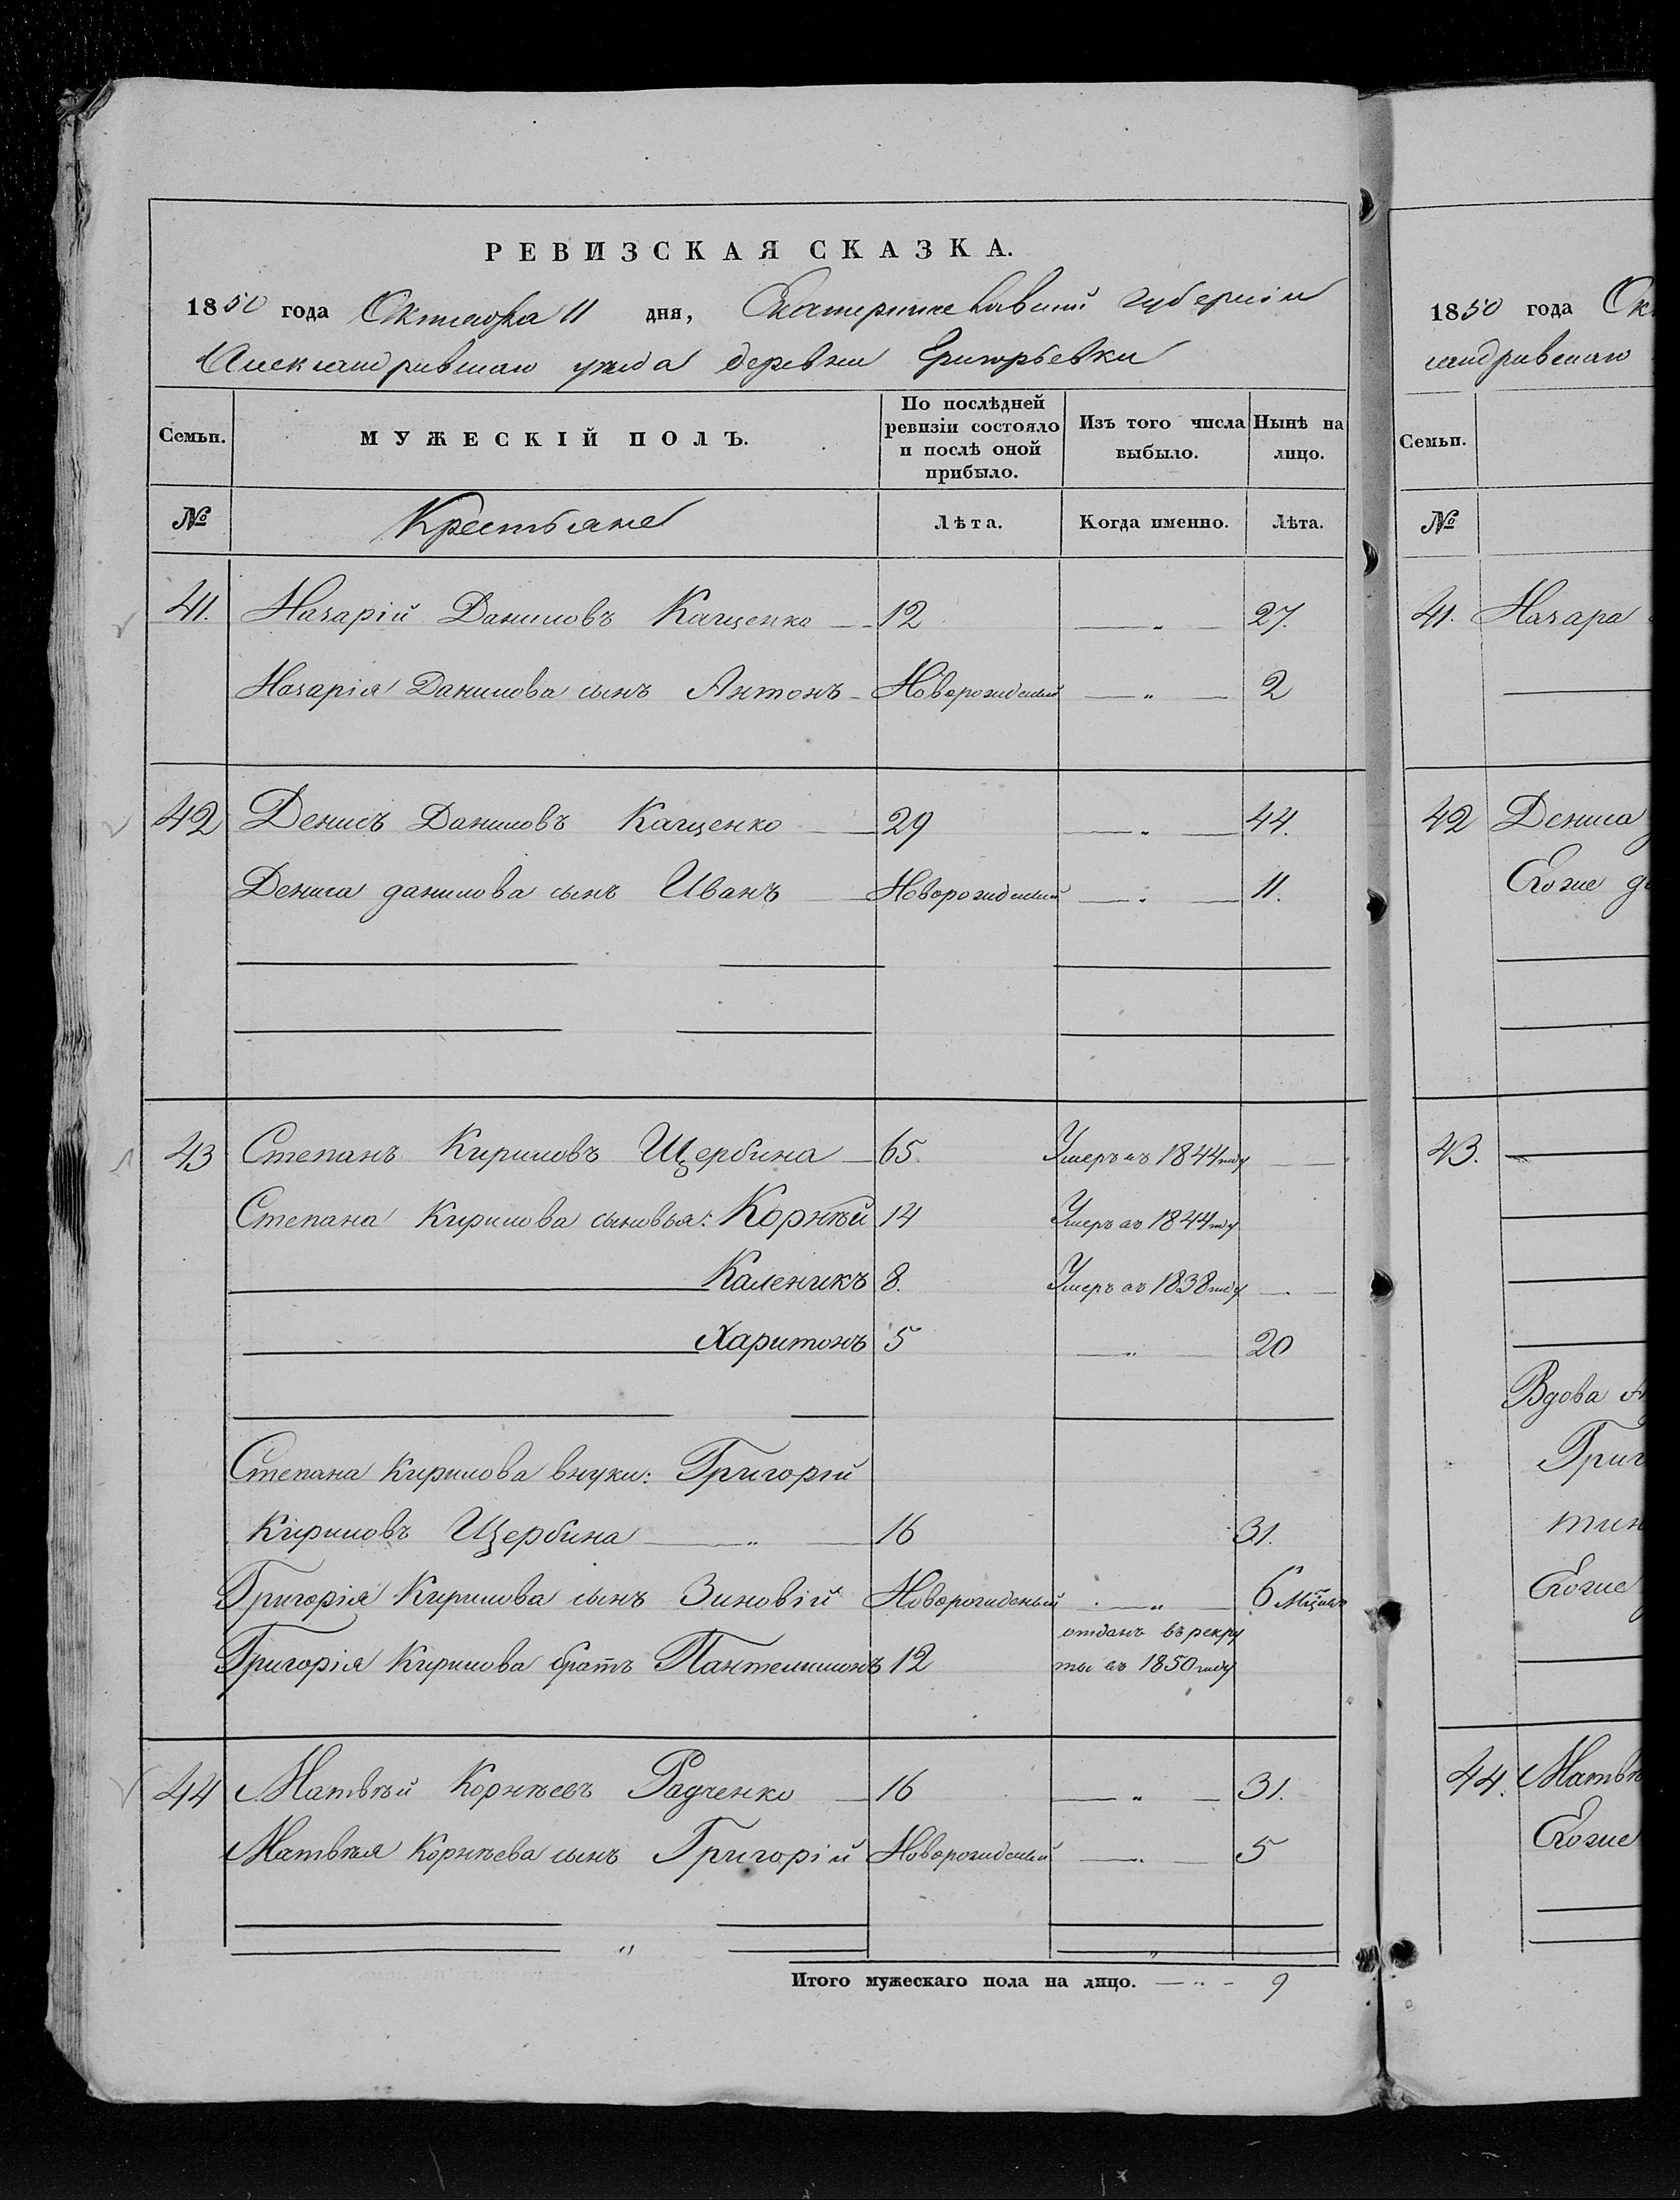 РЕВИЗСКАЯ СКАЗКА.
1850 года Октября 11 дня, Екатеринославской губернии
Александровскаго уезда деревни Григорьевки
Семьи. МУЖЕСКІЙ ПОЛЪ. По послѣдней ревизіи состояло и послѣ оной прибыло. Изъ того числа выбыло. Нынѣ на лицо.
№ Крестьяне Лѣта. Когда именно. Лѣта.
41. Назарій Даниловъ Кащенко 12 — " — 27.
Назарія Данилова сынъ Антонъ Новорожденый — " — 2
42 Денисъ Даниловъ Кащенко 29 — " — 44.
Дениса данилова сынъ Иванъ Новорожденый — " — 11.
43 Степанъ Кириловъ Щербина 65. Умеръ въ 1844 году
Степана Кирилова сыновья: Корнѣй 14 Умеръ въ 1844 году
Каленикъ 8. Умеръ въ 1838 году
Харитонъ 5 — " — 20
Степана Кирилова внуки: Григорій
Кириловъ Щербина — " — 16 31.
Григорія Кирилова сынъ Зиновій Новорожденый — " — 6 Мѣсяц
отданъ въ рекру
Григорія Кирилова братъ Пантелимонъ 12 ты въ 1850 году
44 Матвѣй Корнѣевъ Радченко 16 — " — 31.
Матвѣя Корнѣева сынъ Григорій Новорожденый — " — 5
Итого мужескаго пола на лицо. — " — 9
1850 года Ок
сандровскаго
Семьи.
№
41. Назара
42 Дениса
Егоже до
43.
Вдова
Григ
тин
Егоже
44. Матвѣ
Егоже